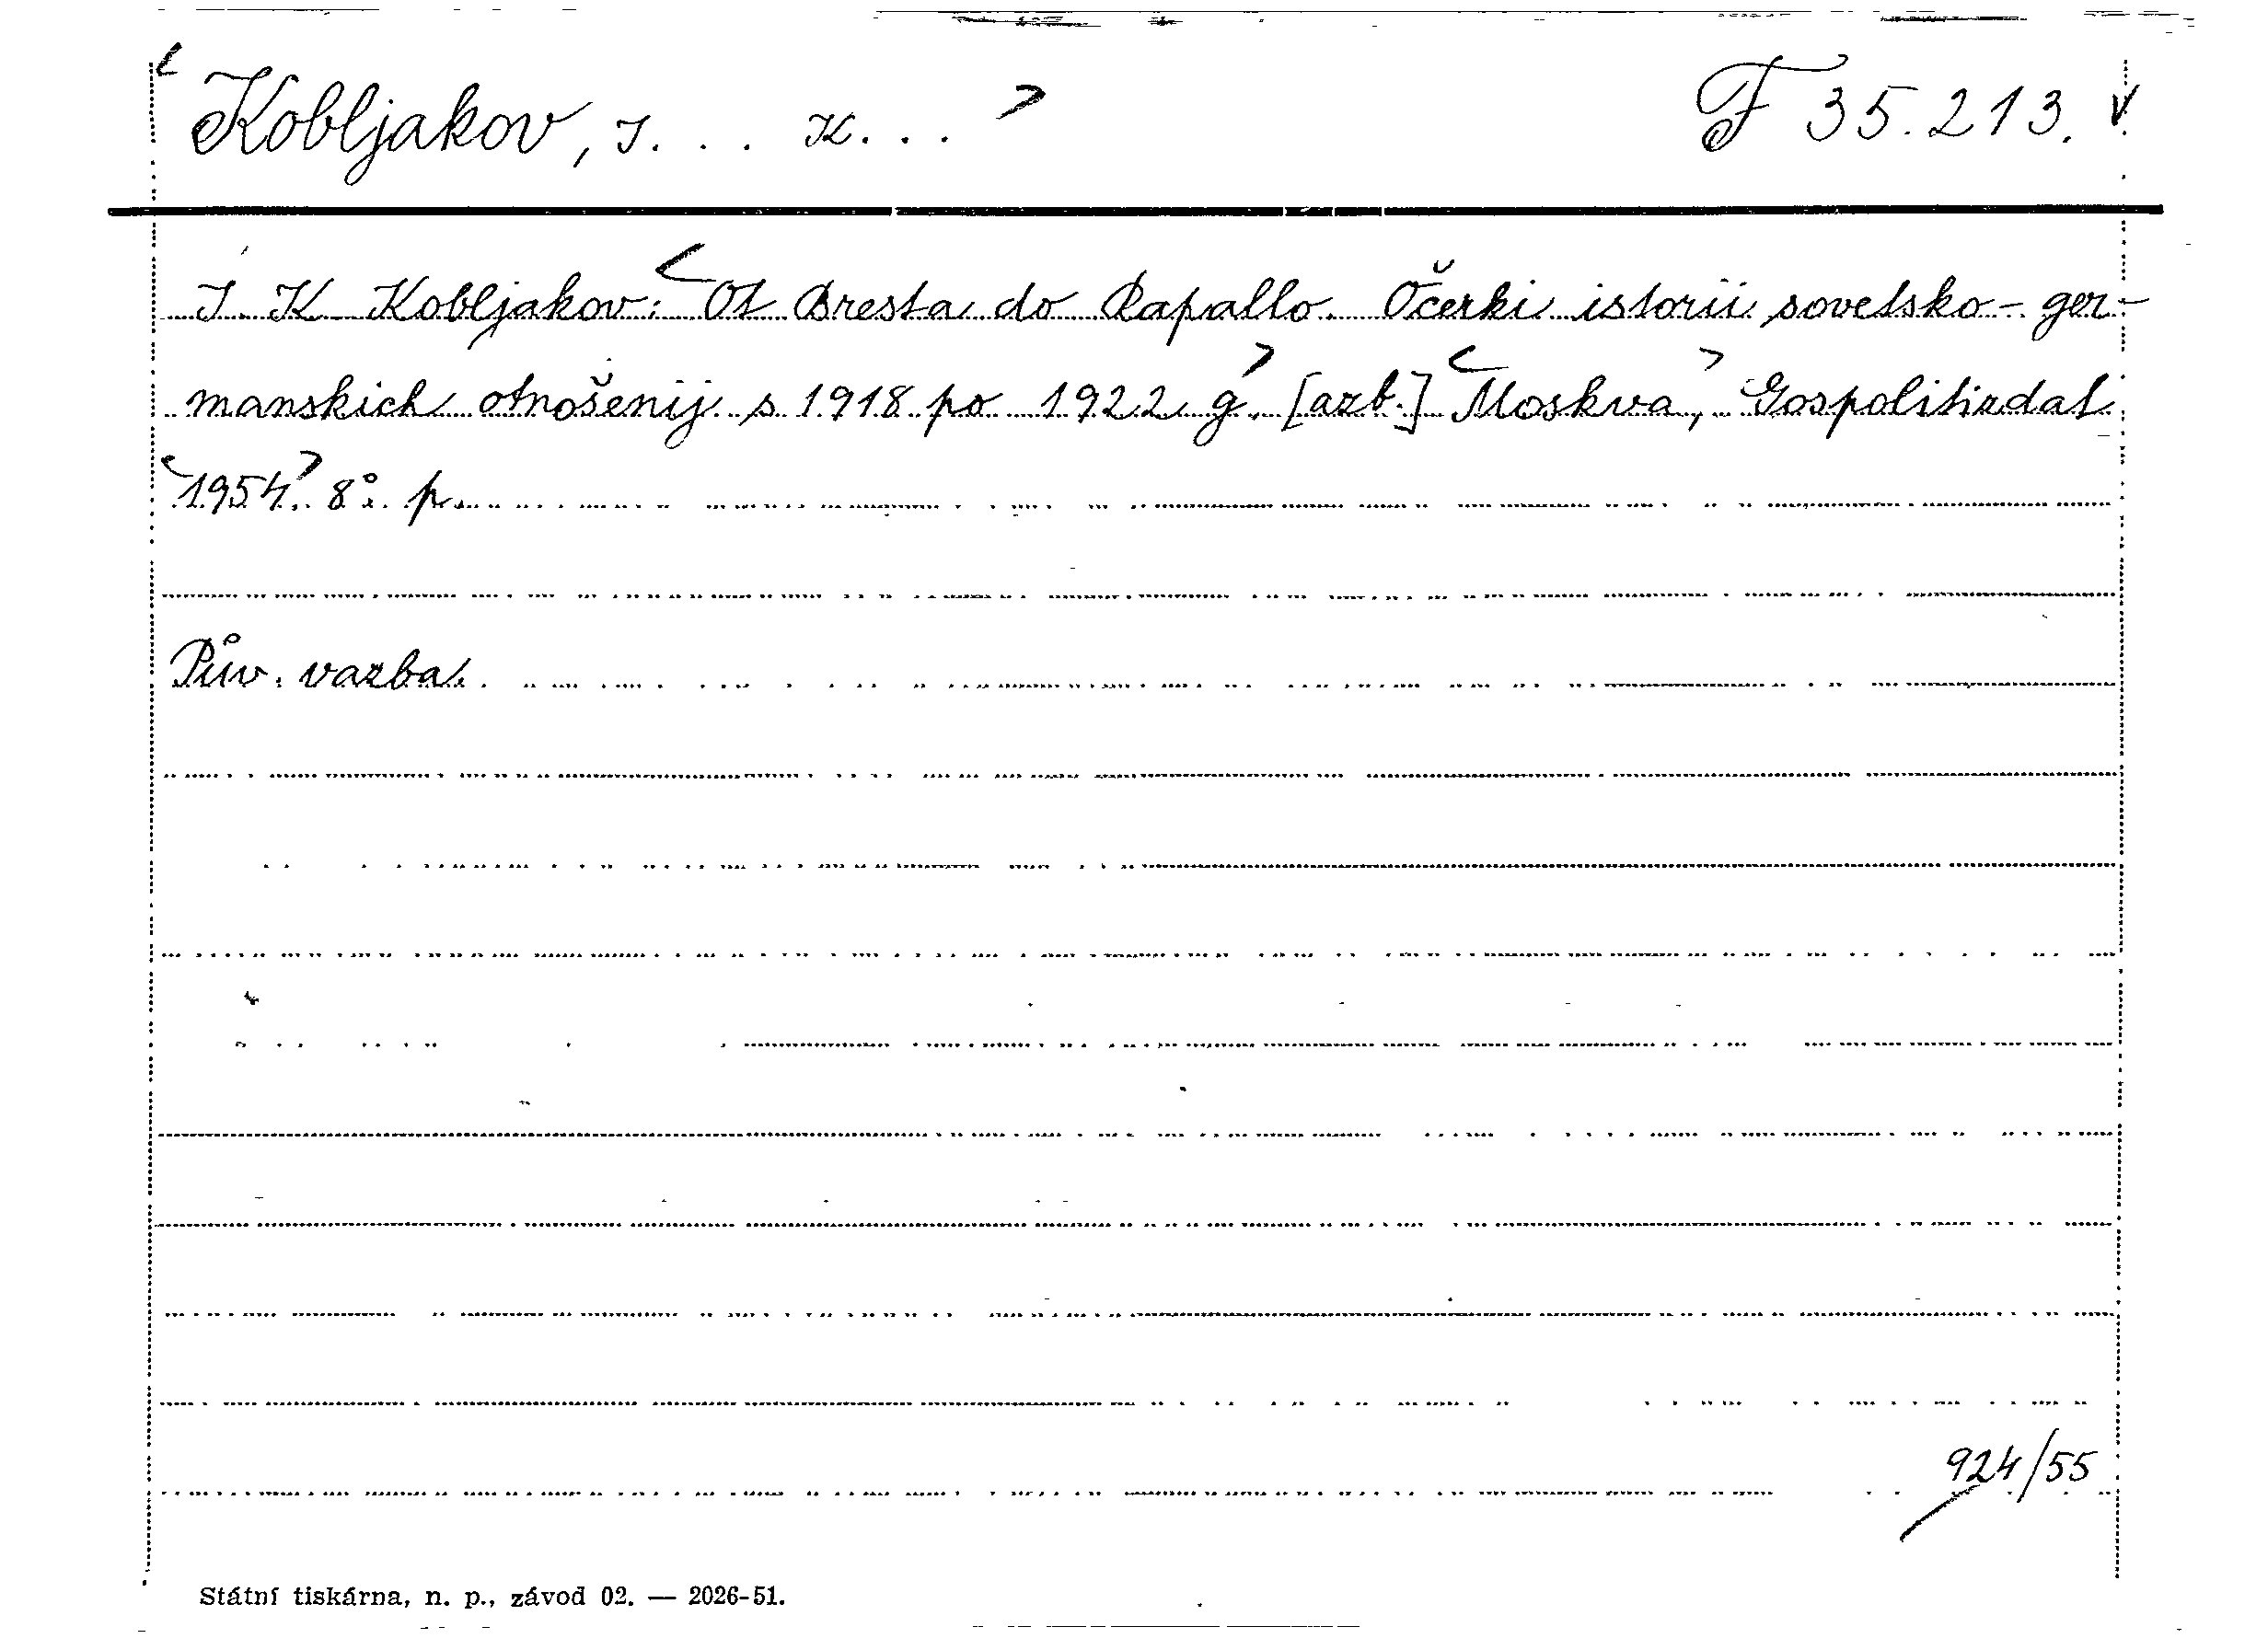 Kobljakov, I. . . K. . . F 35.213.
I. K. Kobljakov: Ot Bresta do Rapallo. Očerki istorii sovetsko-ger-
manskich otnošenij s 1918 po 1922 g. [azb.] Moskva, Gospolitizdat
1954. 8°. p.
Pův. vazba.
924/55
Státní tiskárna, n. p., závod 02. — 2026-51.